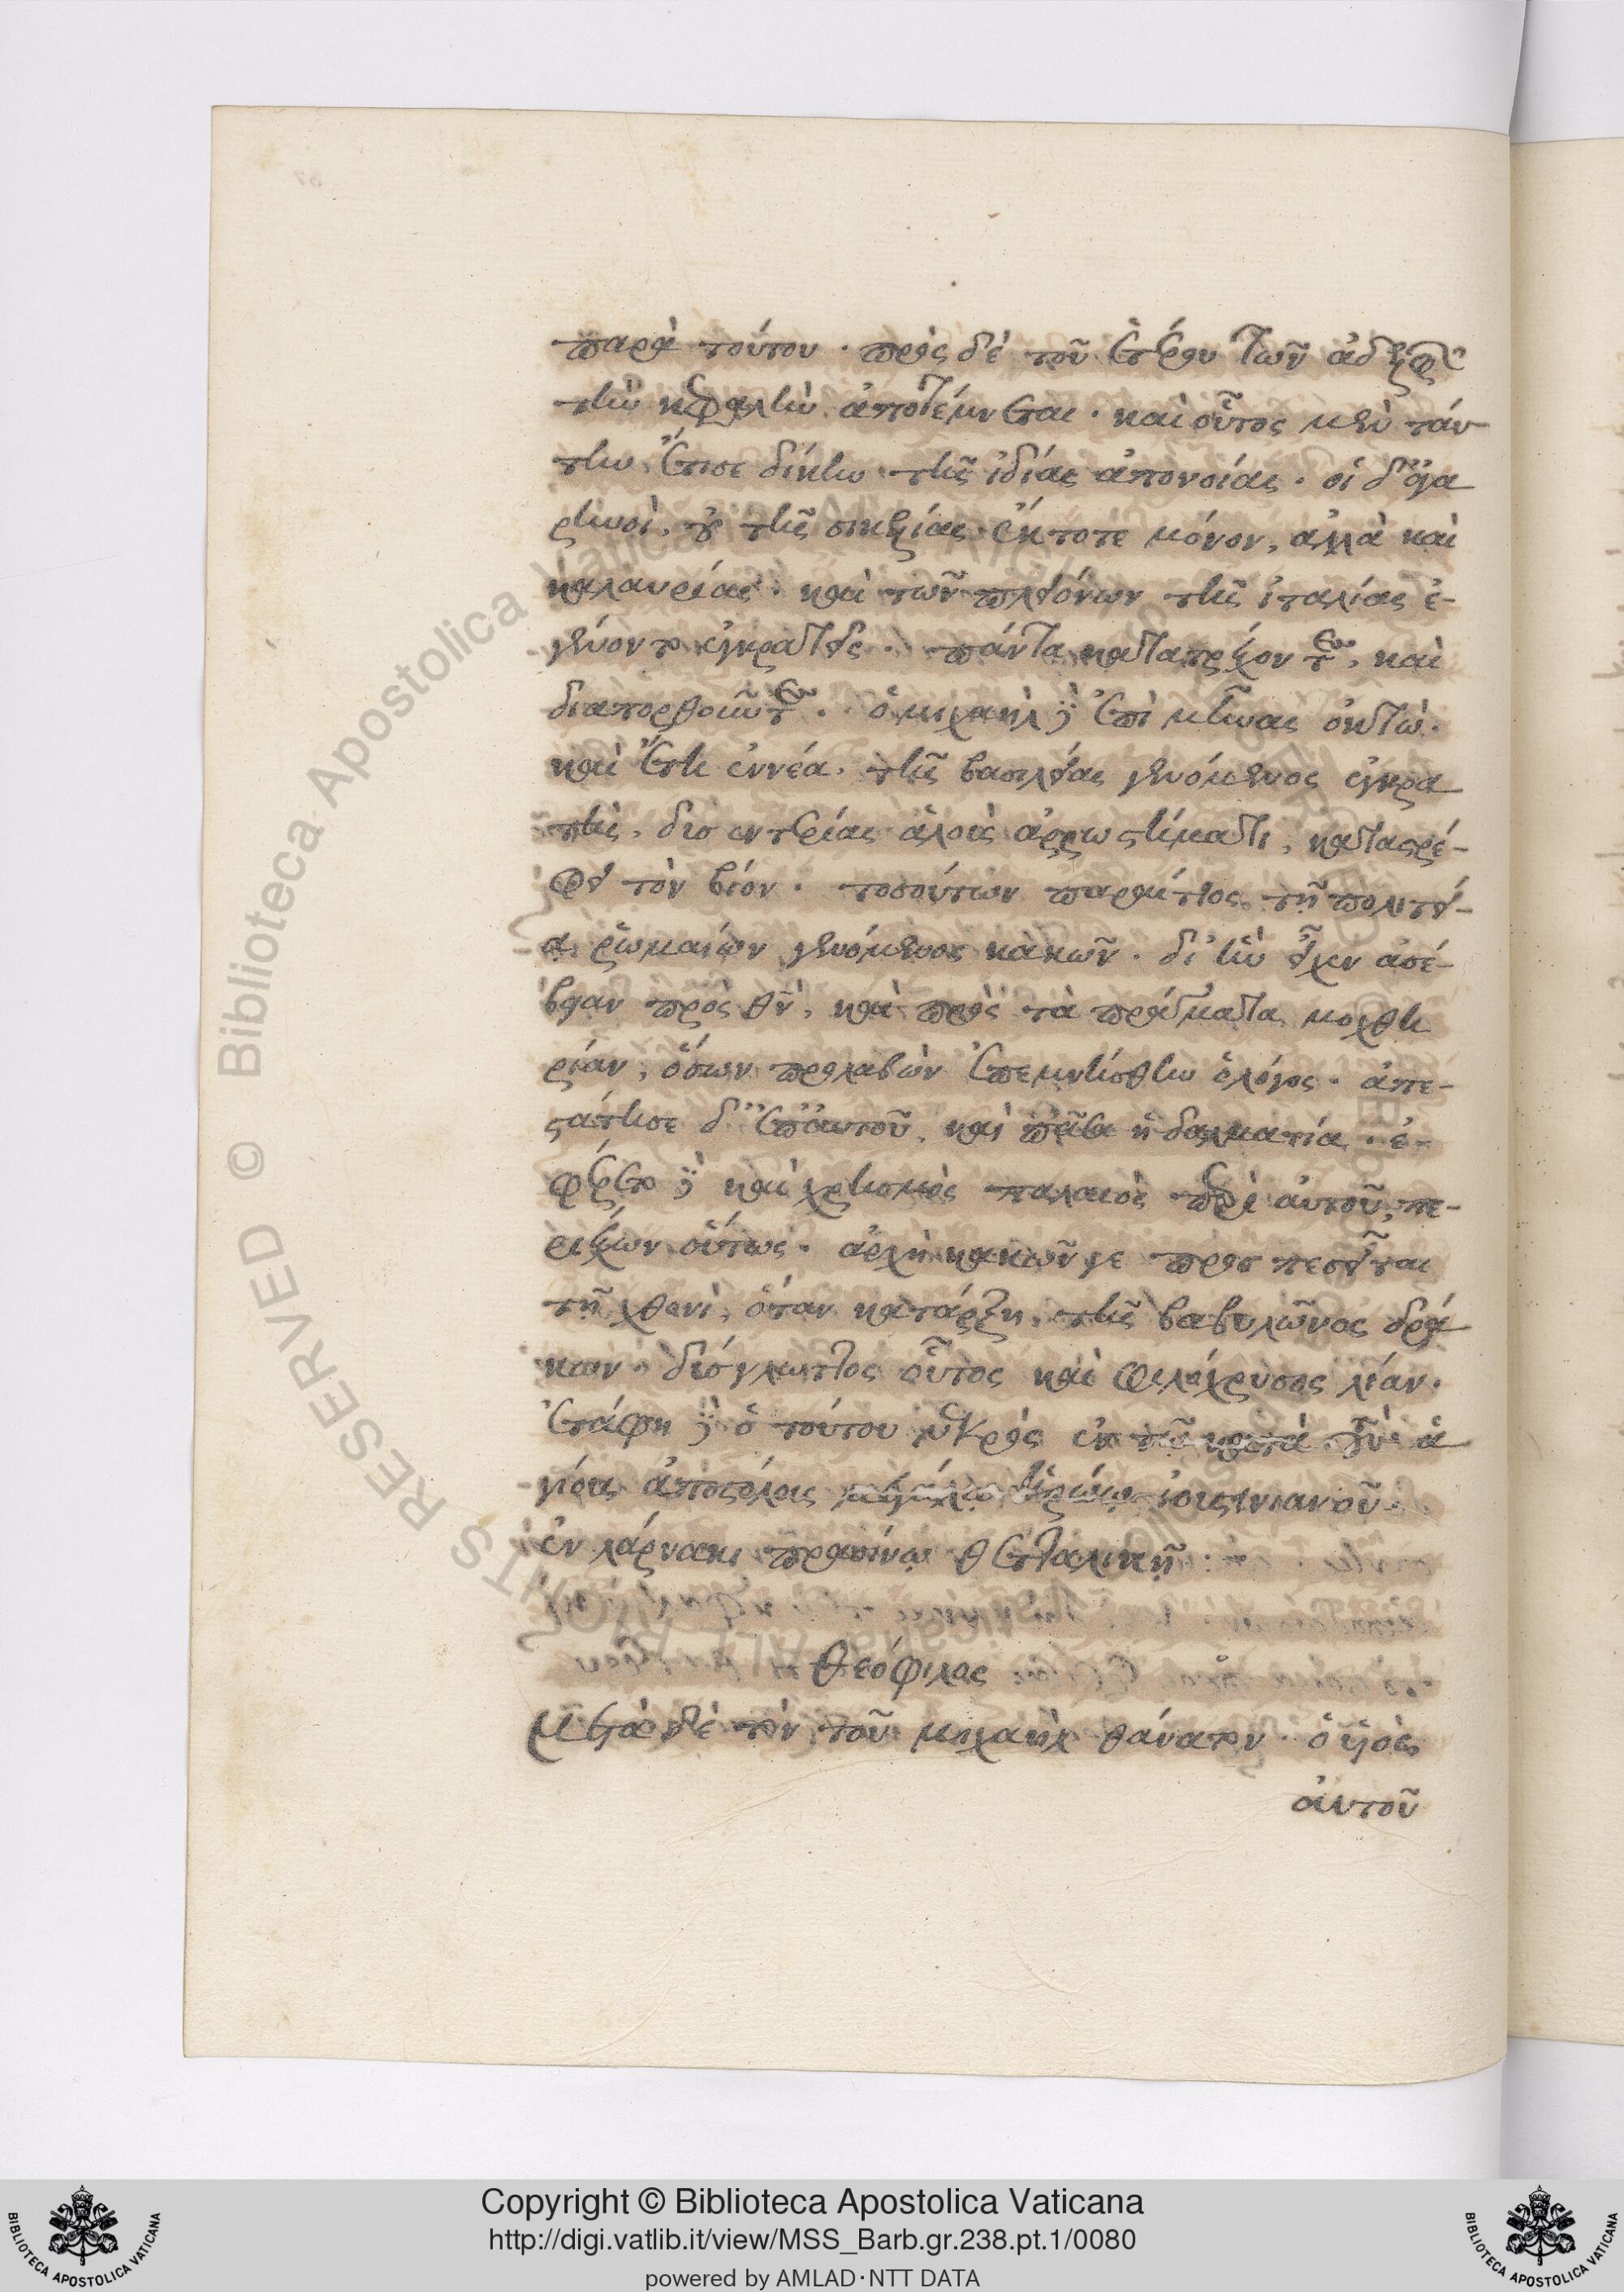 παρὰ τούτου. πρὸς δὲ τοῦ ἑτέρου τῶν ἀδελφῶν
τὴν κεφαλὴν ἀποτέμνεται. καὶ οὗτος μὲν ταύ-
την ἔτισε δίκην τῆς ἰδίας ἀπονοίας. οἱ δ' ἀγα
ρηνοὶ, οὐ τῆς σικελίας ἔκτοτε μόνον, ἀλλὰ καὶ
καλαυρίας. καὶ τῶν πλειόνων τῆς ἰταλίας ἐ-
γένοντο ἐγκρατεῖς. πάντα κατατρέχοντες, καὶ
διαπορθοῦντες. ὁ μιχαὴλ δὲ ἐπὶ μῆνας ὀκτὼ.
καὶ ἔτη ἐννέα. τῆς βασιλείας γενόμενος ἐγκρα
τὴς, δισεντερίας ἁλοὺς ἀρρωστήματι, καταστρέ-
φει τὸν βίον. τοσούτων παραίτιος τῇ πολιτεί-
ᾳ ῥωμαίων γενόμενος κακῶν. δι' ἣν εἶχεν ἀσέ-
βειαν πρὸς θν, καὶ πρὸς τὰ πράγματα μοχθη
ρίαν, ὅσων προλαβὼν ἐπεμνήσθην ὁ λόγος. ἀπε-
στάτησε δ' ἐπ' αὐτοῦ, καὶ πᾶσα ἡ δαλματία. ἐ-
φέρετο δὲ καὶ χρησμὸς παλαιὸς περὶ αὐτοῦ, πε-
ριέχων οὕτως. ἀρχὴ κακῶν γε προσπεσεῖται
τῇ χθονὶ, ὅταν κατάρξῃ, τῆς βαβυλῶνος δρά
κων. δύσγλωττος οὗτος καὶ φιλόχρυσος λίαν.
ἐτάφη δὲ ὁ τούτου νεκρὸς ἐν τῷ κατὰ τοὺς ἁ
γίους ἀποστόλους ἡρώῳ ἰουστινιανοῦ.
ἐν λάρνακι πρασίνῳ θετταλικῇ.
θεόφιλος
Μετὰ δὲ τὸν τοῦ μιχαὴλ θάνατον. ὁ υἱὸς
αὐτοῦ
© Biblioteca Apostolica Vaticana
ALL RIGHTS RESERVED
Copyright © Biblioteca Apostolica Vaticana
http://digi.vatlib.it/view/MSS_Barb.gr.238.pt.1/0080
powered by AMLAD·NTT DATA
BIBLIOTECA APOSTOLICA VATICANA
BIBLIOTECA APOSTOLICA VATICANA